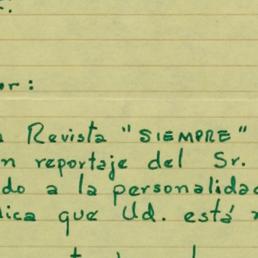 or:
Revista "SIEMPRE"
n reportaje del Sr.
do a la personalidad
ica que Ud. está